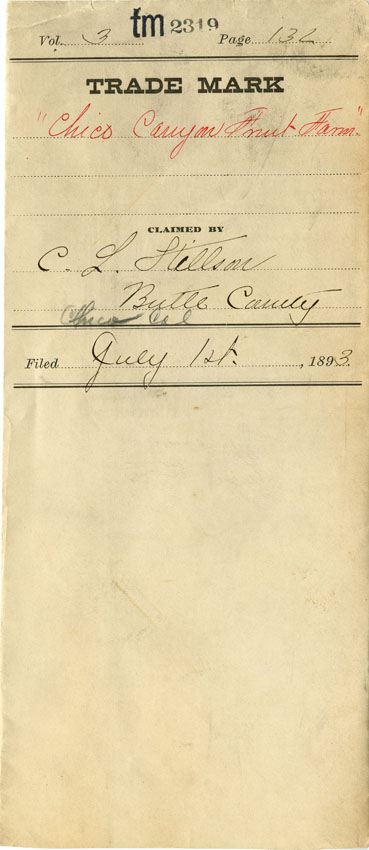 tm 2319
Vol. 3 Page 132
TRADE MARK
"Chico Canyon Fruit Farm."
CLAIMED BY
C. L. Stillson
Butte County
Chico Cal
Filed July 1st. , 1893.